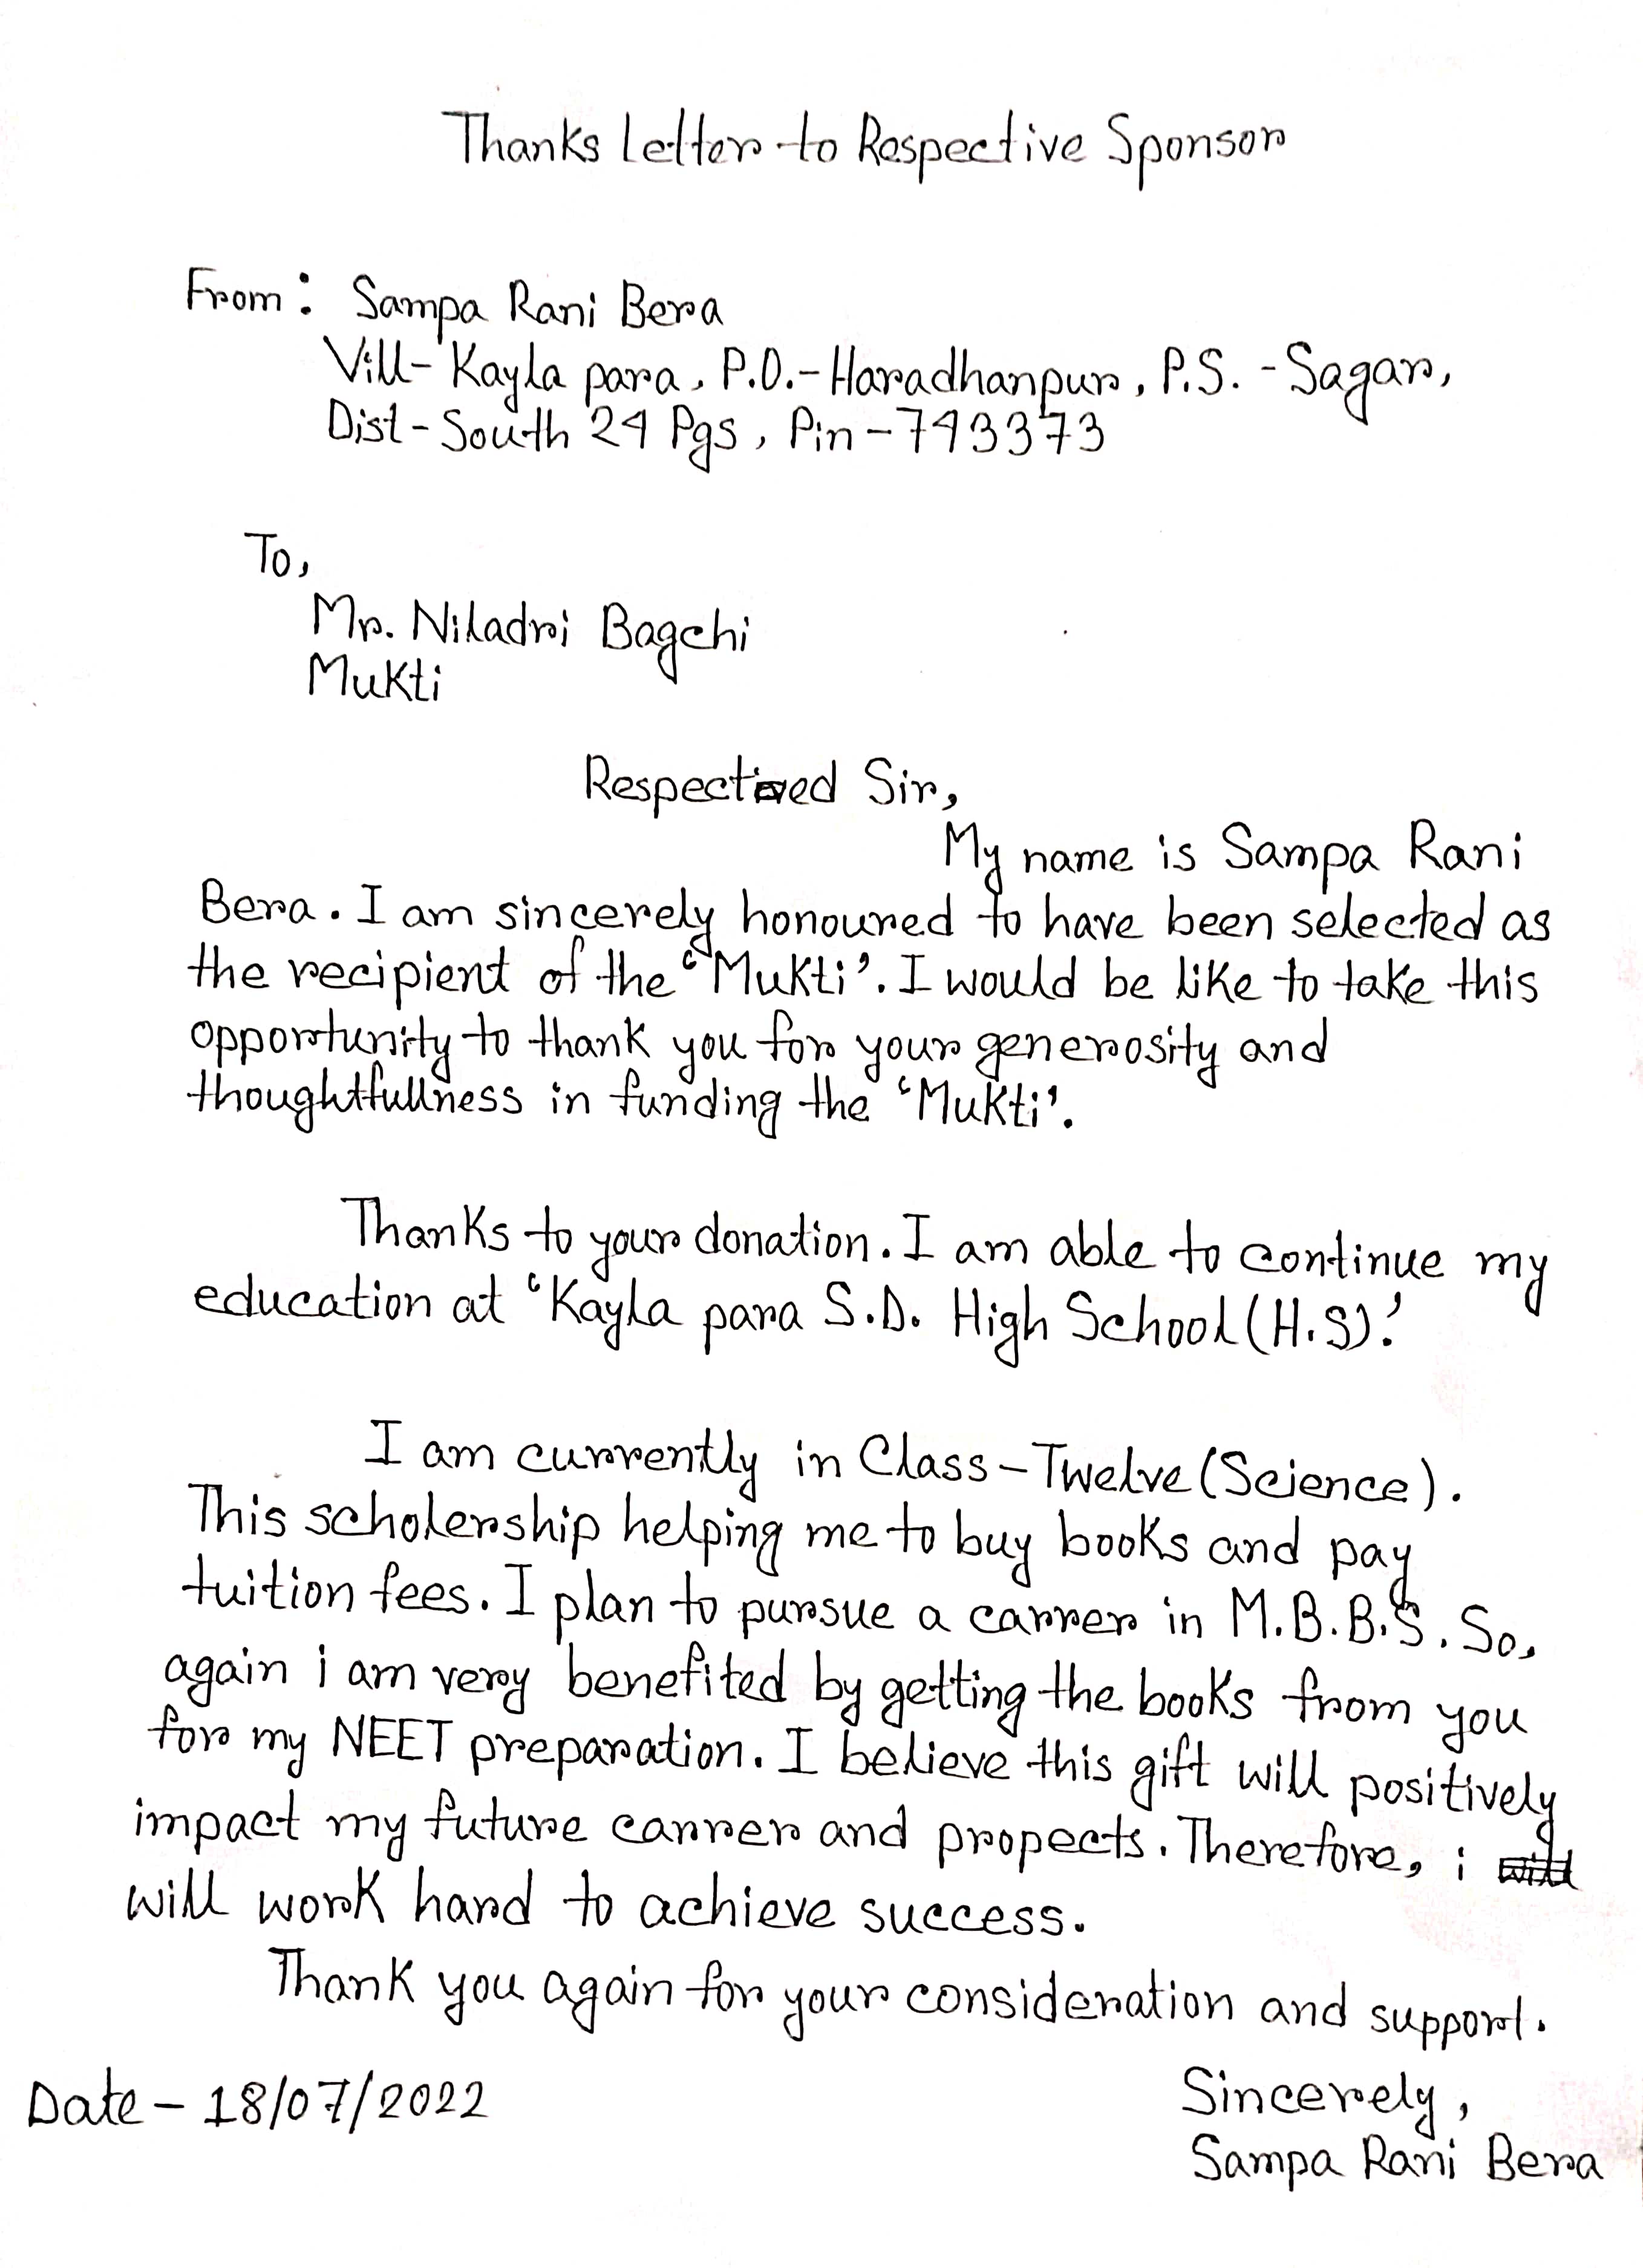 Thanks Letter to Respective Sponsor
From: Sampa Rani Bera
Vill-Kayla para, P.O.-Haradhanpur, P.S. -Sagar,
Dist-South 24 Pgs, Pin-743373
To,
Mr. Niladri Bagchi
Mukti
Respected Sir,
My name is Sampa Rani
Bera. I am sincerely honoured to have been selected as
the recipient of the 'Mukti'. I would be like to take this
opportunity to thank you for your generosity and
thoughtfullness in funding the 'Mukti'.
Thanks to your donation. I am able to continue my
education at 'Kayla para S.D. High School (H.S).'
I am currently in Class-Twelve (Science).
This scholership helping me to buy books and pay
tuition fees. I plan to pursue a carrer in M.B.B.S. So,
again i am very benefited by getting the books from you
for my NEET preparation. I believe this gift will positively
impact my future carrer and propects. Therefore, i
will work hard to achieve success.
Thank you again for your consideration and support.
Date - 18/07/2022
Sincerely,
Sampa Rani Bera